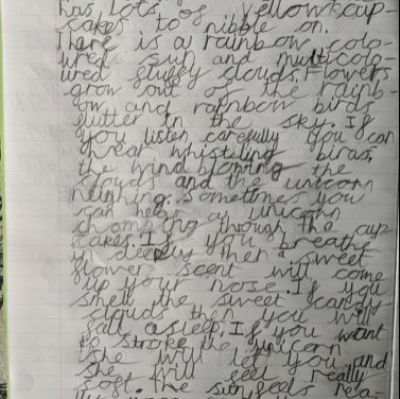 has lots of yellow cup
cakes to nibble on.
There is a rainbow colo-
ured sun and multicolo-
ured fluffy clouds. Flowers
grow out of the rainb-
ow and rainbow birds
flutter in the sky. If
you listen carefully you can
hear whistling birds,
the wind blowing the
clouds and the unicorn
neighing. Sometimes you
can hear a unicorn
chomping through the cup
cakes. If you breathe
in deeply then a sweet
flower scent will come
up your nose. If you
smell the sweet candy
clouds then you will
fall asleep. If you want
to stroke the unicorn
she will let you and
she will feel really
soft. The sun feels rea-